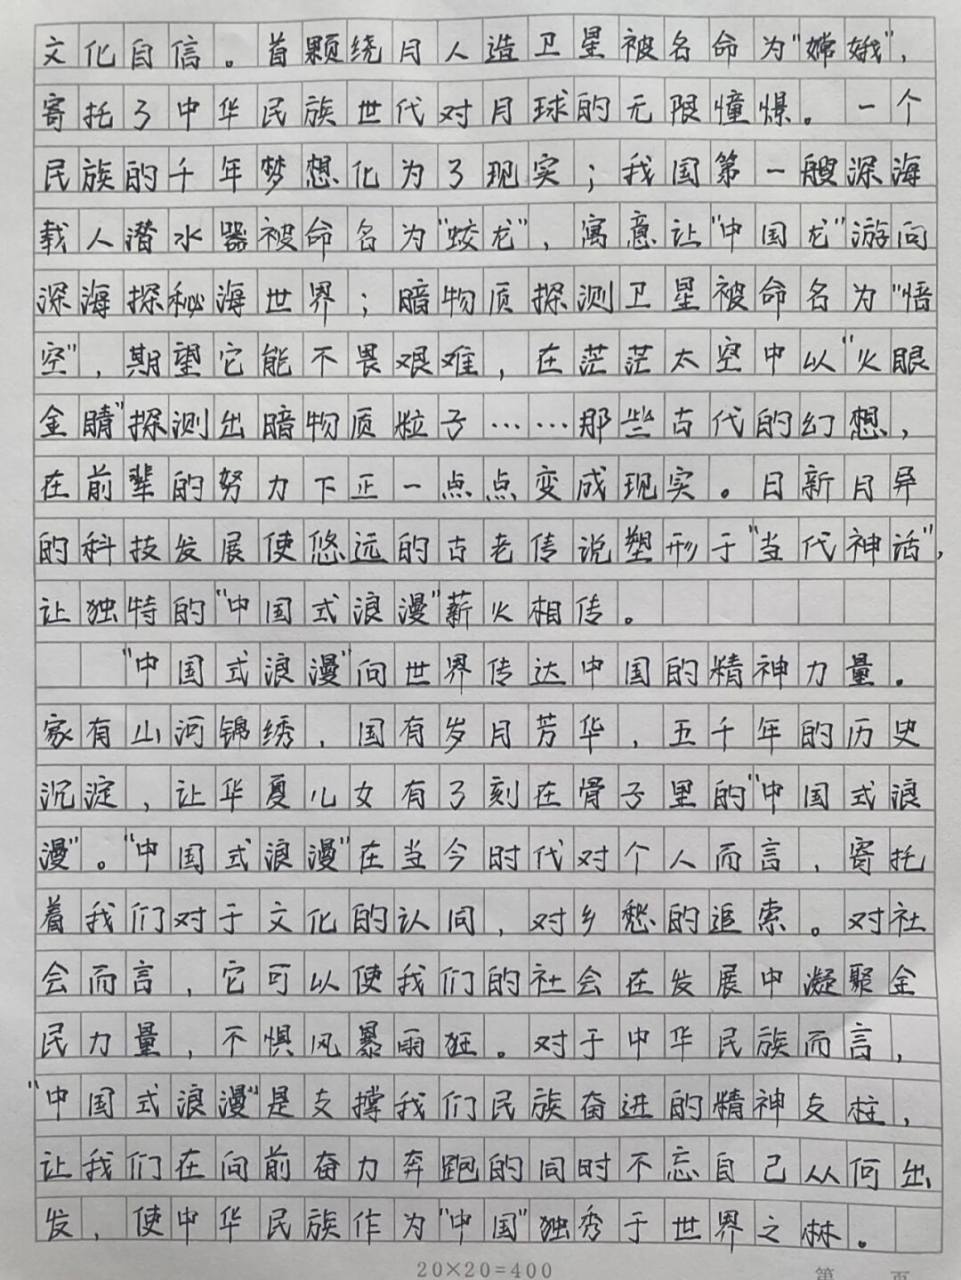 文化自信。首颗绕月人造卫星被名命为"嫦娥",
寄托了中华民族世代对月球的无限憧憬。一个
民族的千年梦想化为了现实;我国第一艘深海
载人潜水器被命名为"蛟龙",寓意让"中国龙"游向
深海探秘海世界;暗物质探测卫星被命名为"悟
空",期望它能不畏艰难,在茫茫太空中以"火眼
金睛"探测出暗物质粒子……那些古代的幻想,
在前辈的努力下正一点点变成现实。日新月异
的科技发展使悠远的古老传说塑形于"当代神话",
让独特的"中国式浪漫"薪火相传。
"中国式浪漫"向世界传达中国的精神力量。
家有山河锦绣,国有岁月芳华,五千年的历史
沉淀,让华夏儿女有了刻在骨子里的"中国式浪
漫"。"中国式浪漫"在当今时代对个人而言,寄托
着我们对于文化的认同,对乡愁的追索。对社
会而言,它可以使我们的社会在发展中凝聚全
民力量,不惧风暴雨狂。对于中华民族而言,
"中国式浪漫"是支撑我们民族奋进的精神支柱,
让我们在向前奋力奔跑的同时不忘自己从何出
发,使中华民族作为"中国"独秀于世界之林。
20×20=400
第 页